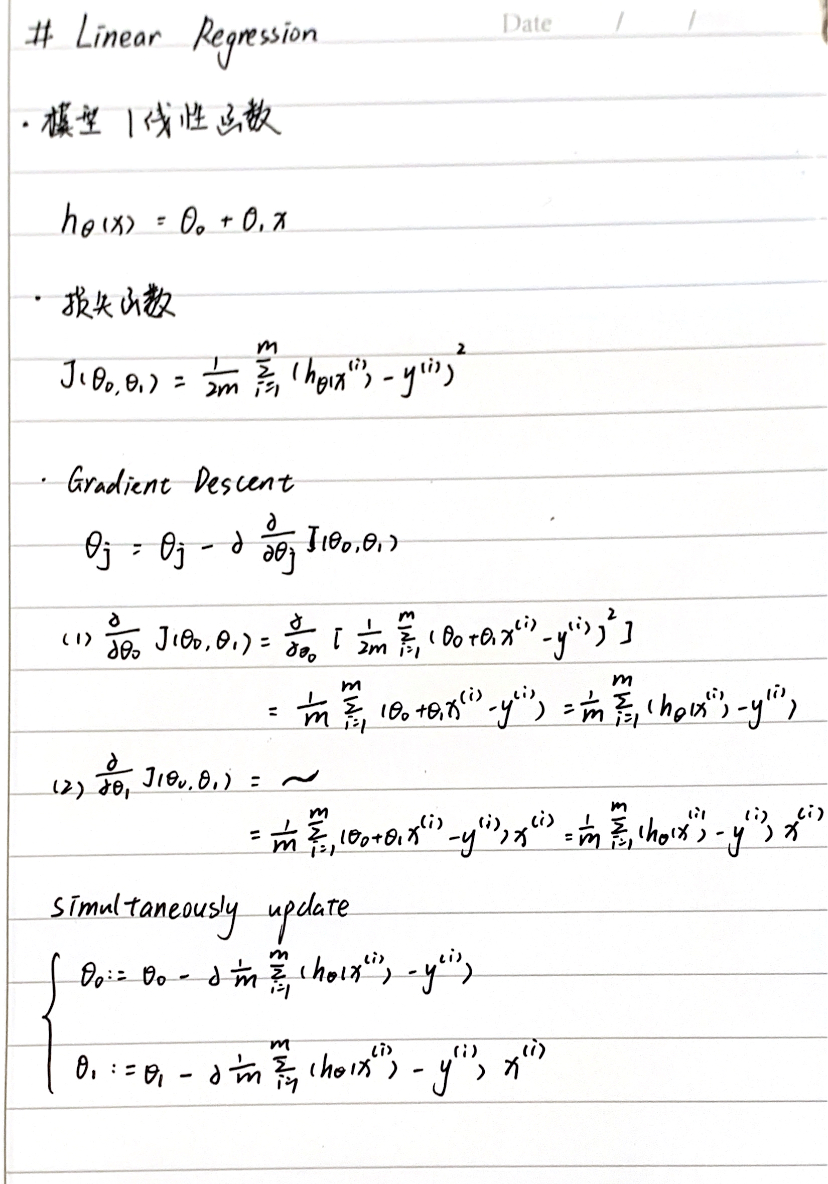 Date / /
# Linear Regression
· 模型 | 线性函数
hθ(x) = θ₀ + θ₁x
· 损失函数
J(θ₀, θ₁) = 1/2m ∑_{i=1}^{m} (hθ(x⁽ⁱ⁾) - y⁽ⁱ⁾)²
· Gradient Descent
θj = θj - ∂ ∂/∂θj J(θ₀, θ₁)
(1) ∂/∂θ₀ J(θ₀, θ₁) = ∂/∂θ₀ [ 1/2m ∑_{i=1}^{m} (θ₀ + θ₁x⁽ⁱ⁾ - y⁽ⁱ⁾)² ]
= 1/m ∑_{i=1}^{m} (θ₀ + θ₁x⁽ⁱ⁾ - y⁽ⁱ⁾) = 1/m ∑_{i=1}^{m} (hθ(x⁽ⁱ⁾) - y⁽ⁱ⁾)
(2) ∂/∂θ₁ J(θ₀, θ₁) = ~
= 1/m ∑_{i=1}^{m} (θ₀ + θ₁x⁽ⁱ⁾ - y⁽ⁱ⁾) x⁽ⁱ⁾ = 1/m ∑_{i=1}^{m} (hθ(x⁽ⁱ⁾) - y⁽ⁱ⁾) x⁽ⁱ⁾
simultaneously update
θ₀ := θ₀ - ∂ 1/m ∑_{i=1}^{m} (hθ(x⁽ⁱ⁾) - y⁽ⁱ⁾)
θ₁ := θ₁ - ∂ 1/m ∑_{i=1}^{m} (hθ(x⁽ⁱ⁾) - y⁽ⁱ⁾) x⁽ⁱ⁾